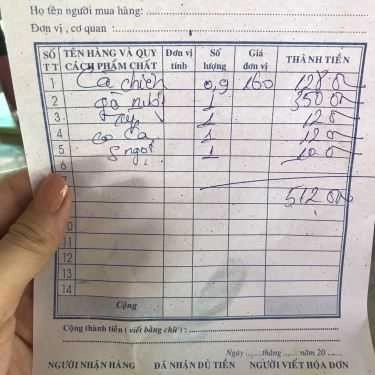 Họ tên người mua hàng:
Đơn vị, cơ quan :
SỐ TT TÊN HÀNG VÀ QUY CÁCH PHẨM CHẤT Đơn vị tính Số lượng Giá đơn vị THÀNH TIỀN
1 Cá chiên 0,9 160
2 gà nướng 1 350
3 12
4 co ca 1 12
5 5 ngọt 1 10
6
7
512
10
11
12
13
14
Cộng
Cộng thành tiền ( viết bằng chữ ) :
Ngày tháng năm 20
NGƯỜI NHẬN HÀNG ĐÃ NHẬN ĐỦ TIỀN NGƯỜI VIẾT HÓA ĐƠN